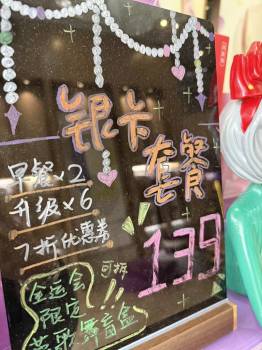 银卡
套餐
早餐×2
升级×6
7折优惠券
139
可拆
全运会
限定
英歌舞盲盒
!!